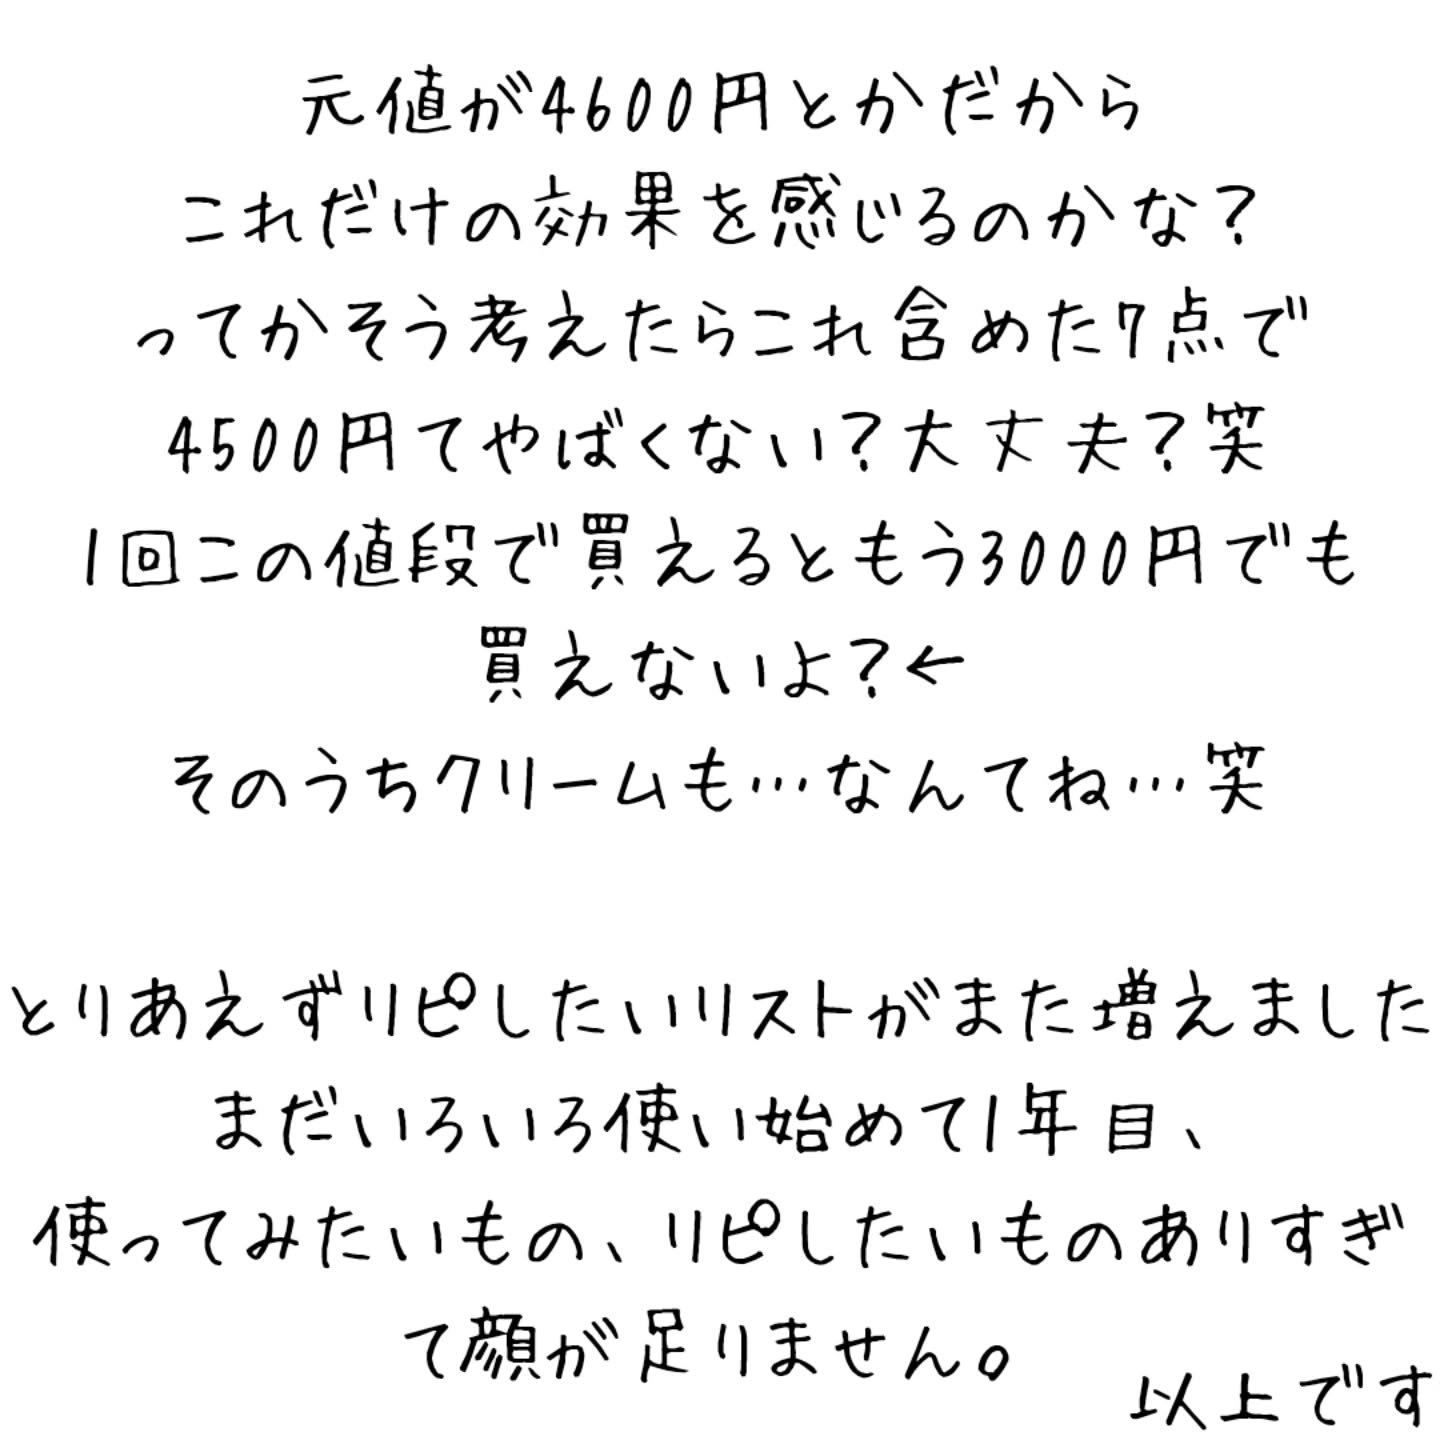 元値が4600円とかだから
これだけの効果を感じるのかな？
ってかそう考えたらこれ含めた7点で
4500円てやばくない？大丈夫？笑
1回この値段で買えるともう3000円でも
買えないよ？←
そのうちクリームも…なんてね…笑
とりあえずリピしたいリストがまた増えました
まだいろいろ使い始めて1年目、
使ってみたいもの、リピしたいものありすぎ
て顔が足りません。
以上です